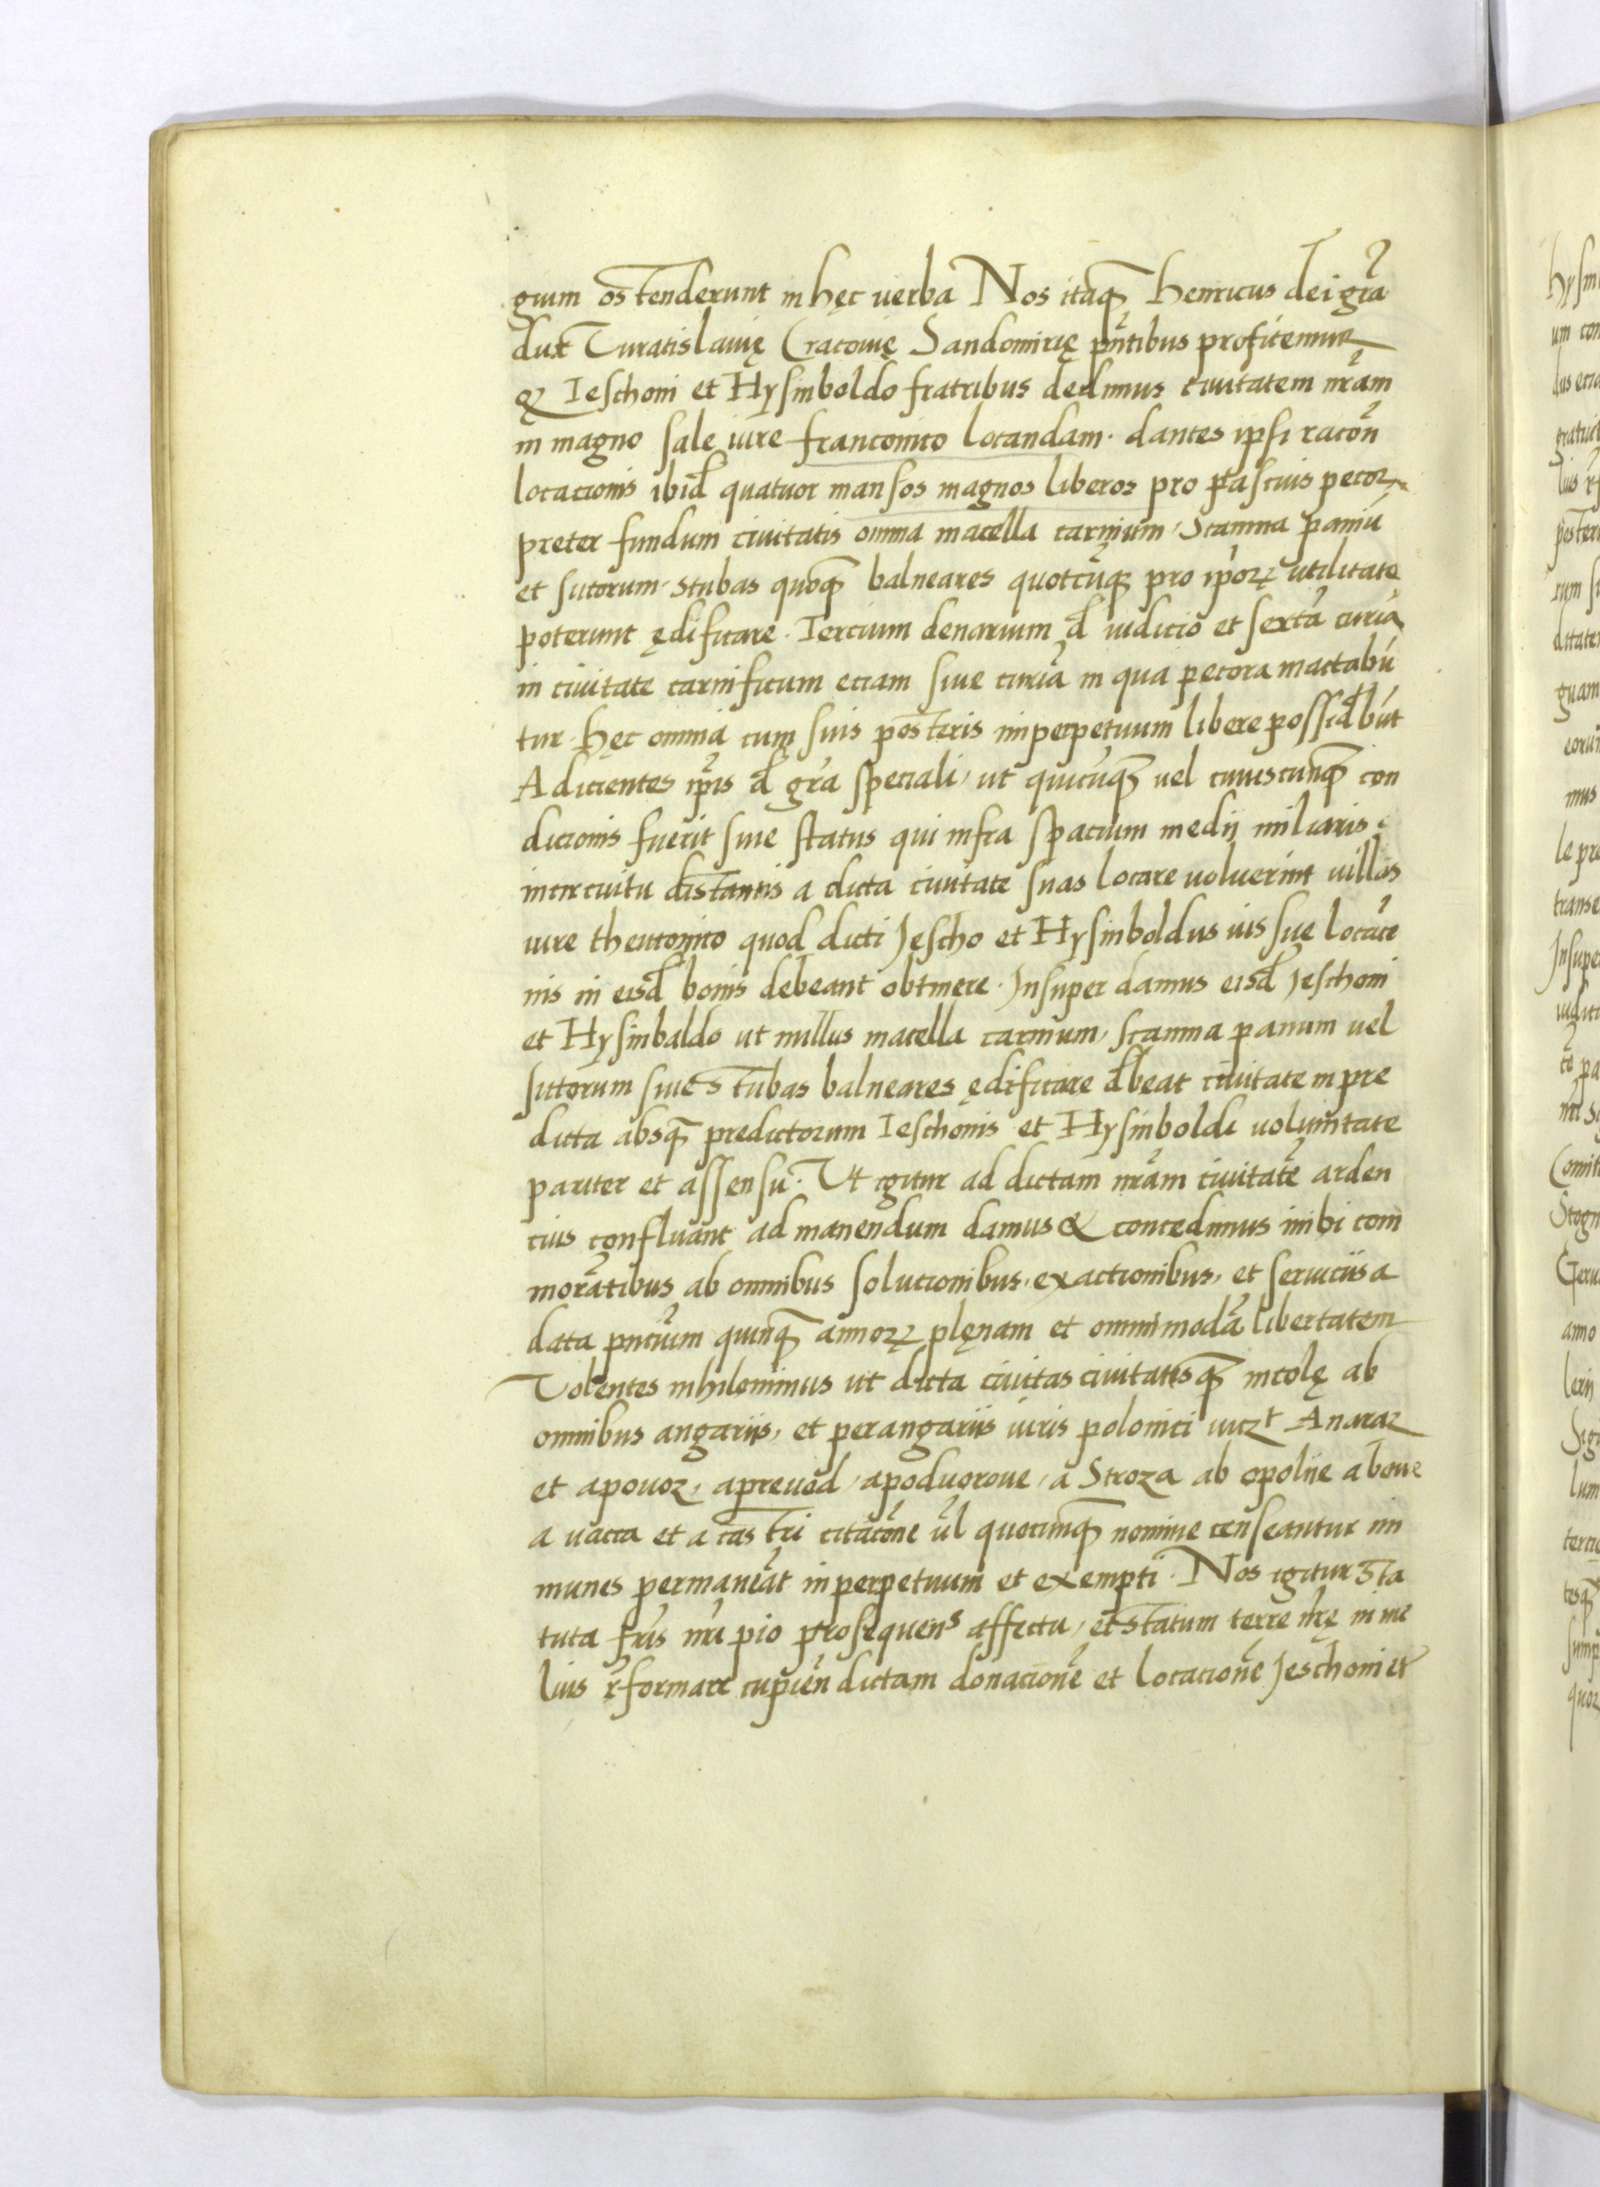 gium ostenderunt in hęc uerba Nos itaq₃ Henricus dei gr̃a
dux Vratislauię Cracouię Sandomirię pñtibus profitemur
q₂ Ieschoni et Hysinboldo fratribus dedimus ciuitatem nr̃am
in magno sale iure franconico locandam· dantes ipsi racõn
locacionis ibid̃ quatuor mansos magnos liberos pro pascuis pecoꝝ
preter fundum ciuitatis omnia macella carnium, Scamna paniũ
et sutorum· stubas quoq₃ balneares quotcũq₃ pro ip̃oꝝ utilitate
poterunt ędificare · Tercium denarium d̃ iudicio et sextã curiã
in ciuitate carnificum eciam siue curiã in qua pecora mactabũ
tur · hęc omnia cum suis posteris inperpetuum libere possid̃būt
Adicientes ip̃is d̃ gr̃a speciali, ut quicũq₃ uel cuiuscunq₃ con
dicionis fuerit siue status qui infra spacium medij miliaris
incircuitu distantis a dicta ciuitate suas locare uoluerint uillas
iure theutonico quod dicti Jescho et Hysinboldus ius suę locacĩo
nis in eisd̃ bonis debeant obtinere · Insuper damus eisd̃ Jeschoni
et Hysinbaldo ut nullus macella carnium, scamna panum uel
sutorum siue stubas balneares ędificare d̃beat ciuitate in pre
dicta absq₃ predictorum Ieschonis et Hysinboldi uoluntate
pariter et assensu · Ut igitur ad dictam nr̃am ciuitatẽ arden
cius confluant ad manendum damus & concedimus inibi com
morãtibus ab omnibus solucionibus, exactionibus, et seruiciis a
data pñcium quinq₃ annoꝝ plęnam et omnimodã libertatem
Volentes nihilominus ut dicta ciuitas ciuitatisq₃ incolę ab
omnibus angariis, et perangariis iuris polonici uicꝫt Anaraz
et apouoz, apreuod, apoduoroue, a Stroza ab opolne abeue
a uacca et a castri citacõne ũl quocunq₃ nomine censeantur im
munes permaneãt inperpetuum et exempti · Nos igitur sta
tuta fr̃is nr̃i pio prosequens affectu, et statum terre nr̃ę in me
lius r̃formare cupiẽn dictam donacionẽ et locacionẽ Jeschoni et